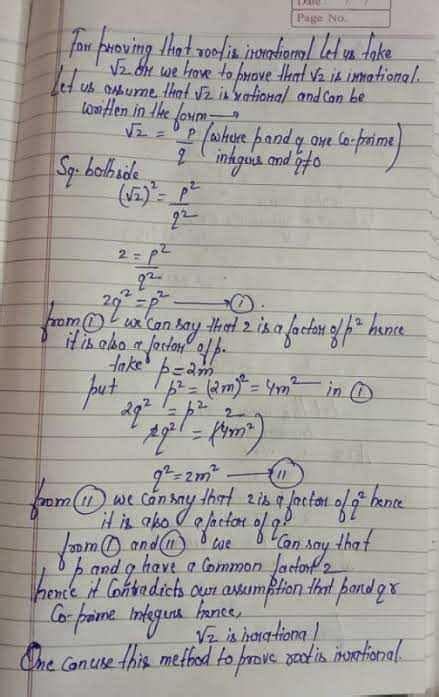 Date / /
Page No.
For proving that root is irrational let us take
√2 or we have to prove that √2 is irrational.
Let us assume that √2 is rational and can be
written in the form →
√2 = p/q (where p and q are co-prime
integers and q≠0
Sq. both side
(√2)² = p²/q²
2 = p²/q²
2q² = p² → (I).
from (I) we can say that 2 is a factor of p² hence
it is also a factor of p.
take p = 2m
put p² = (2m)² = 4m² in (I)
2q² = p²
2q² = (4m²)
q² = 2m² → (II)
from (II) we can say that 2 is a factor of q² hence
it is also a factor of q.
from (I) and (II) we can say that
p and q have a common factor 2
hence it contradicts our assumption that p and q r
Co-prime integers hence,
√2 is irrational
One can use this method to prove root is irrational.